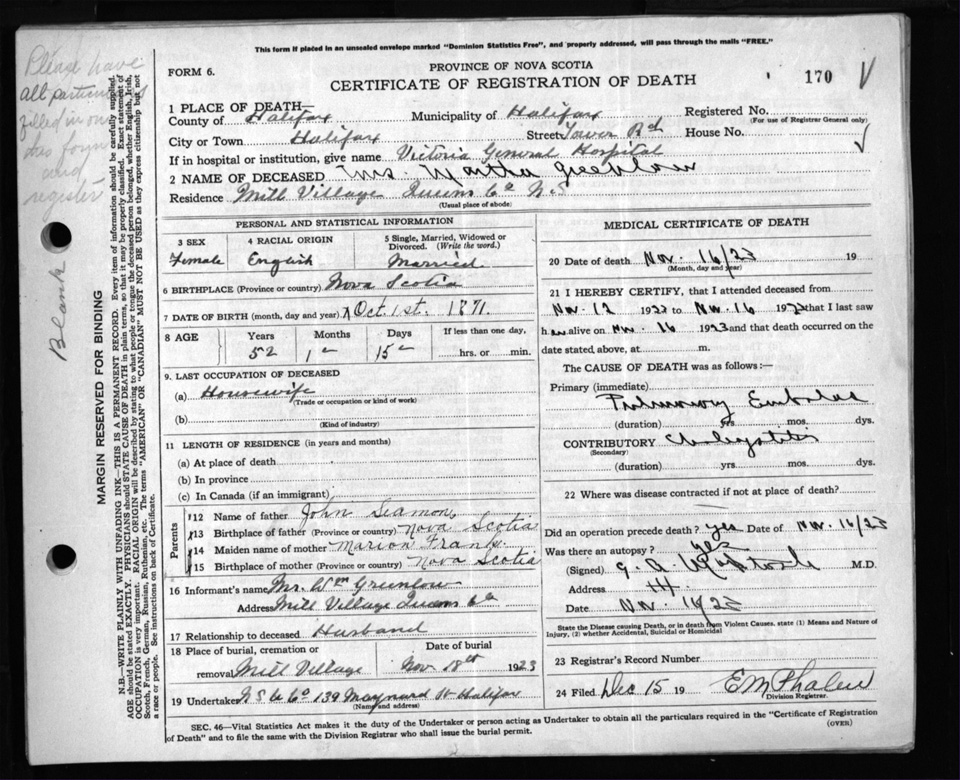 This form if placed in an unsealed envelope marked "Dominion Statistics Free", and properly addressed, will pass through the mails "FREE."
Please have
all particulars
filled in on
form
and
register
Blank
MARGIN RESERVED FOR BINDING
N.B.—WRITE PLAINLY WITH UNFADING INK—THIS IS A PERMANENT RECORD. Every item of information should be carefully supplied.
AGE should be stated EXACTLY. PHYSICIANS should STATE CAUSE OF DEATH in plain terms, so that it may be properly classified. Exact statement of
OCCUPATION is very important. RACIAL ORIGIN will be described by stating to what people or tongue the deceased person belonged, whether English, Irish,
Scotch, French, German, Russian, Ruthenian, etc. The terms "AMERICAN" OR "CANADIAN" MUST NOT BE USED as they express citizenship but not
a race or people. See instructions on back of Certificate.
FORM 6.
PROVINCE OF NOVA SCOTIA
CERTIFICATE OF REGISTRATION OF DEATH
170
1 PLACE OF DEATH—
County of Halifax Municipality of Halifax Registered No.
(For use of Registrar General only)
City or Town Halifax Street Tower Rd House No.
If in hospital or institution, give name Victoria General Hospital
2 NAME OF DECEASED Mrs. Martha Greenlow
Residence Mill Village Queens Co N.S.
(Usual place of abode)
PERSONAL AND STATISTICAL INFORMATION
3 SEX 4 RACIAL ORIGIN 5 Single, Married, Widowed or
Divorced. (Write the word.)
Female English Married.
6 BIRTHPLACE (Province or country) Nova Scotia
7 DATE OF BIRTH (month, day and year) Oct. 1st. 1871.
8 AGE Years Months Days If less than one day,
52 1 15 hrs. or min.
9. LAST OCCUPATION OF DECEASED
(a) Housewife
(Trade or occupation or kind of work)
(b)
(Kind of industry)
11 LENGTH OF RESIDENCE (in years and months)
(a) At place of death
(b) In province
(c) In Canada (if an immigrant)
Parents
12 Name of father John Seamone
13 Birthplace of father (Province or country) Nova Scotia
14 Maiden name of mother Marion Frank.
15 Birthplace of mother (Province or country) Nova Scotia
16 Informant's name Mr. Wm Greenlow
Address Mill Village Queens Co
17 Relationship to deceased Husband
18 Place of burial, cremation or Date of burial
removal Mill Village Nov 18th 1923
19 Undertaker N S U Co 139 Maynard St Halifax
(Name and address)
MEDICAL CERTIFICATE OF DEATH
20 Date of death Nov. 16/23 19
(Month, day and year)
21 I HEREBY CERTIFY, that I attended deceased from
Nov. 12 1923 to Nov. 16 1923 that I last saw
her alive on Nov. 16 1923 and that death occurred on
date stated above, at m.
The CAUSE OF DEATH was as follows:—
Primary (immediate)
Pulmonary Embolus
(duration) yrs mos. dys.
CONTRIBUTORY
(Secondary)
(duration) yrs. mos. dys.
22 Where was disease contracted if not at place of death?
Did an operation precede death? yes Date of Nov. 16/23
Was there an autopsy? yes
(Signed) M.D.
Address H.
Date Nov. 16/23
State the Disease causing Death, or in death from Violent Causes, state (1) Means and Nature of
Injury, (2) whether Accidental, Suicidal or Homicidal
23 Registrar's Record Number
24 Filed Dec 15 19 E M Phalen
Division Registrar.
SEC. 46—Vital Statistics Act makes it the duty of the Undertaker or person acting as Undertaker to obtain all the particulars required in the "Certificate of Registration
of Death" and to file the same with the Division Registrar who shall issue the burial permit. (OVER)